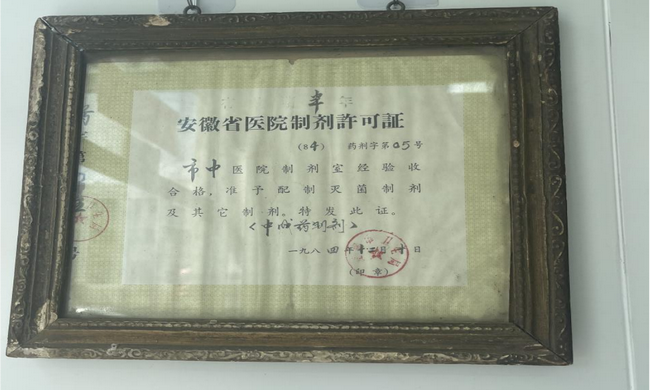 安徽省医院制剂許可証
(84) 药剂字第05号
市中医院制剂室经验收
合格，准予配制灭菌制剂
及其它制剂。特发此证。
《中西药制剂》
一九八四年十二月十日
(印章)